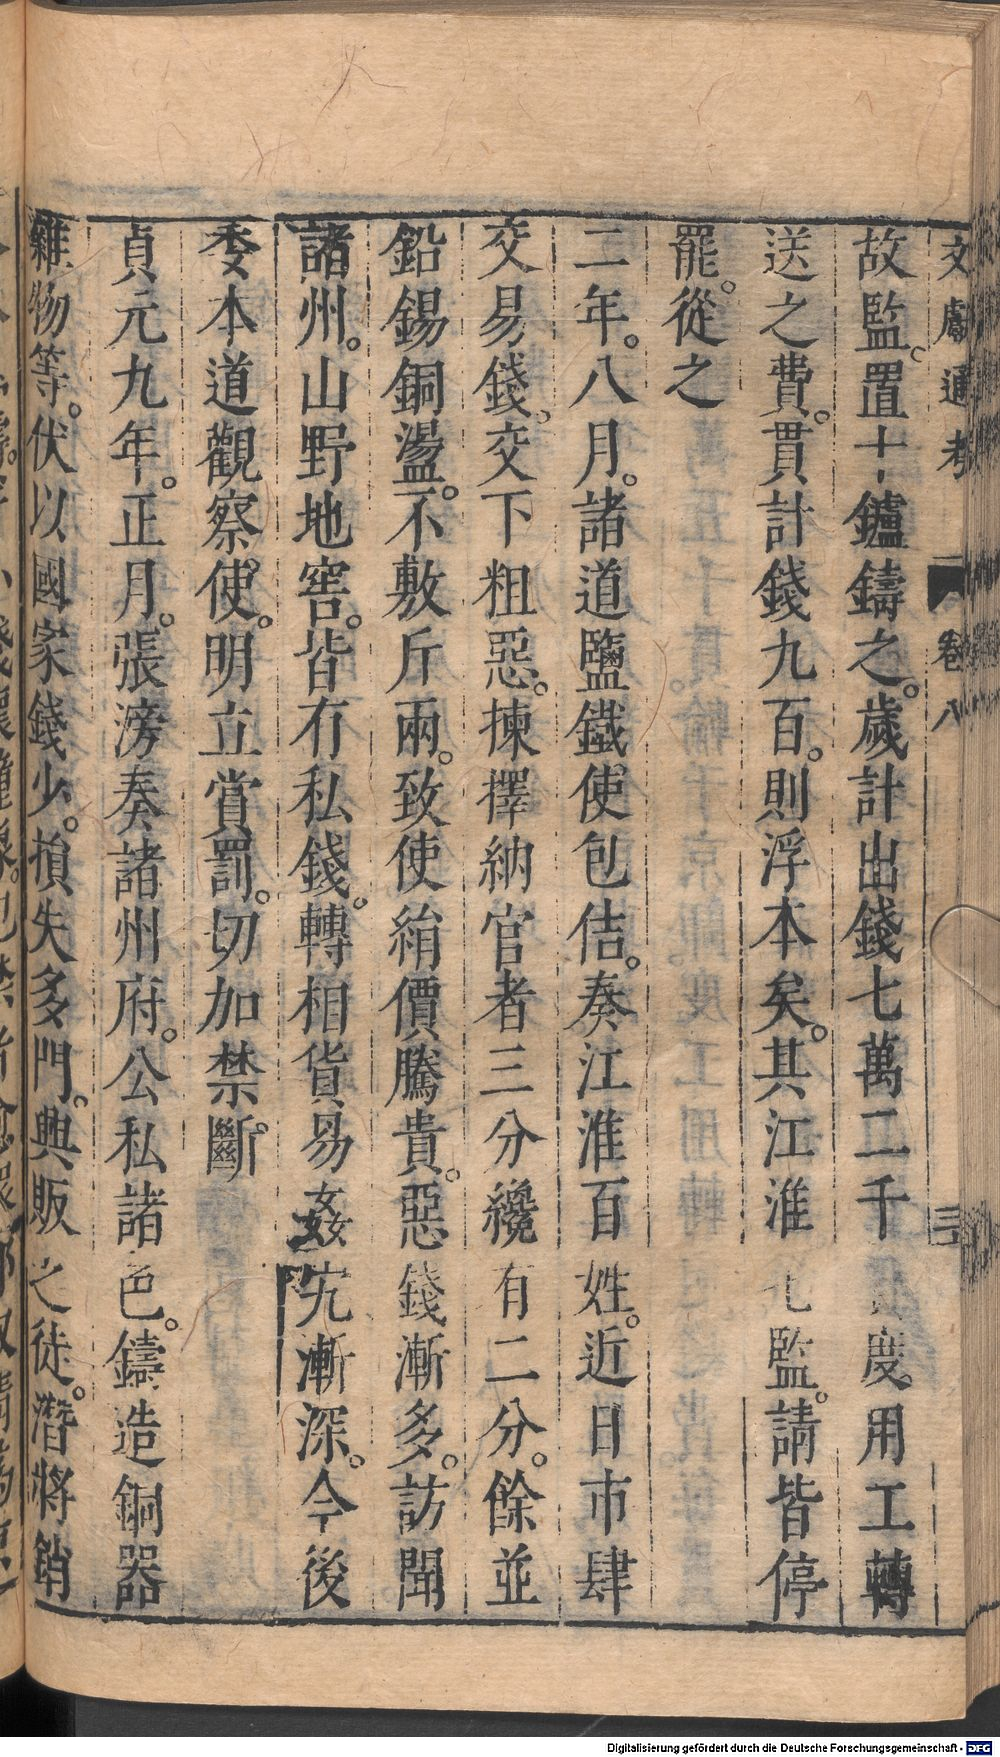 文獻通考 卷八 三
故監。置十鑪鑄之。歲計出錢七萬二千 度。用工轉
送之費。貫計錢九百。則浮本矣。其江淮七監。請皆停
罷。從之
二年。八月。諸道鹽鐵使包佶。奏江淮百姓。近日市肆
交易錢。交下粗惡。揀擇納官者三分纔有二分。餘並
鉛錫銅盪。不敷斤兩。致使絹價騰貴。惡錢漸多。訪聞
諸州。山野地窖。皆有私錢。轉相貨易姦宄漸深。今後
委本道觀察。使。明立賞罰。切加禁斷。
貞元九年。正月。張滂奏諸州府。公私諸色。鑄造銅器
雜物等。伏以國家錢少。損失多門。興販之徒。潛將銷
Digitalisierung gefördert durch die Deutsche Forschungsgemeinschaft - DFG